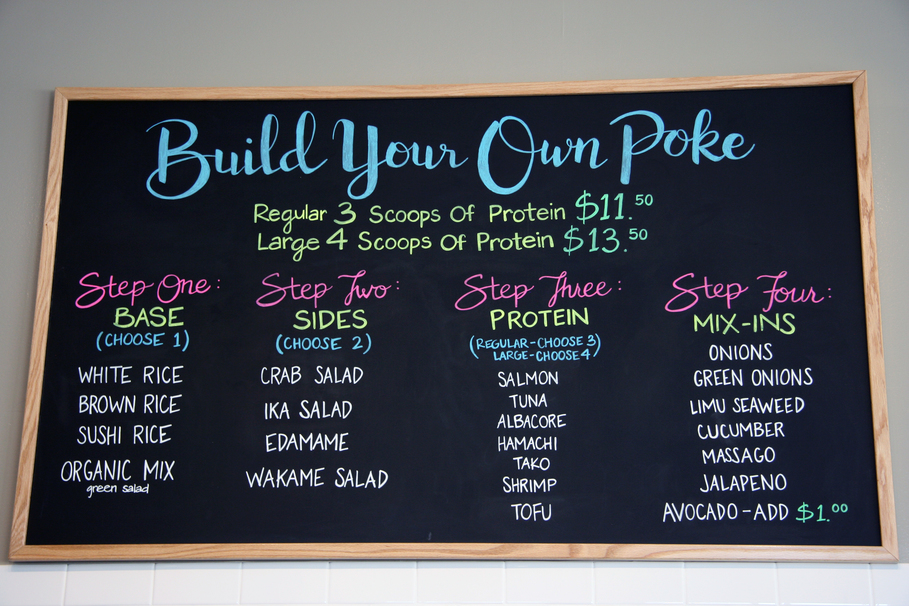 Build Your Own Poke
Regular 3 Scoops Of Protein $11.50
Large 4 Scoops Of Protein $13.50
Step One:
BASE
(CHOOSE 1)
WHITE RICE
BROWN RICE
SUSHI RICE
ORGANIC MIX
green salad
Step Two:
SIDES
(CHOOSE 2)
CRAB SALAD
IKA SALAD
EDAMAME
WAKAME SALAD
Step Three:
PROTEIN
(REGULAR-CHOOSE 3
LARGE-CHOOSE 4)
SALMON
TUNA
ALBACORE
HAMACHI
TAKO
SHRIMP
TOFU
Step Four:
MIX-INS
ONIONS
GREEN ONIONS
LIMU SEAWEED
CUCUMBER
MASSAGO
JALAPENO
AVOCADO-ADD $1.00